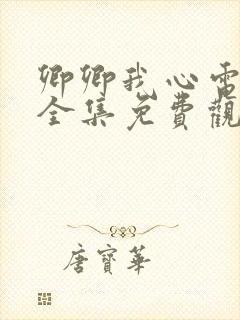 卿卿我心電
全集免費觀
唐寶華